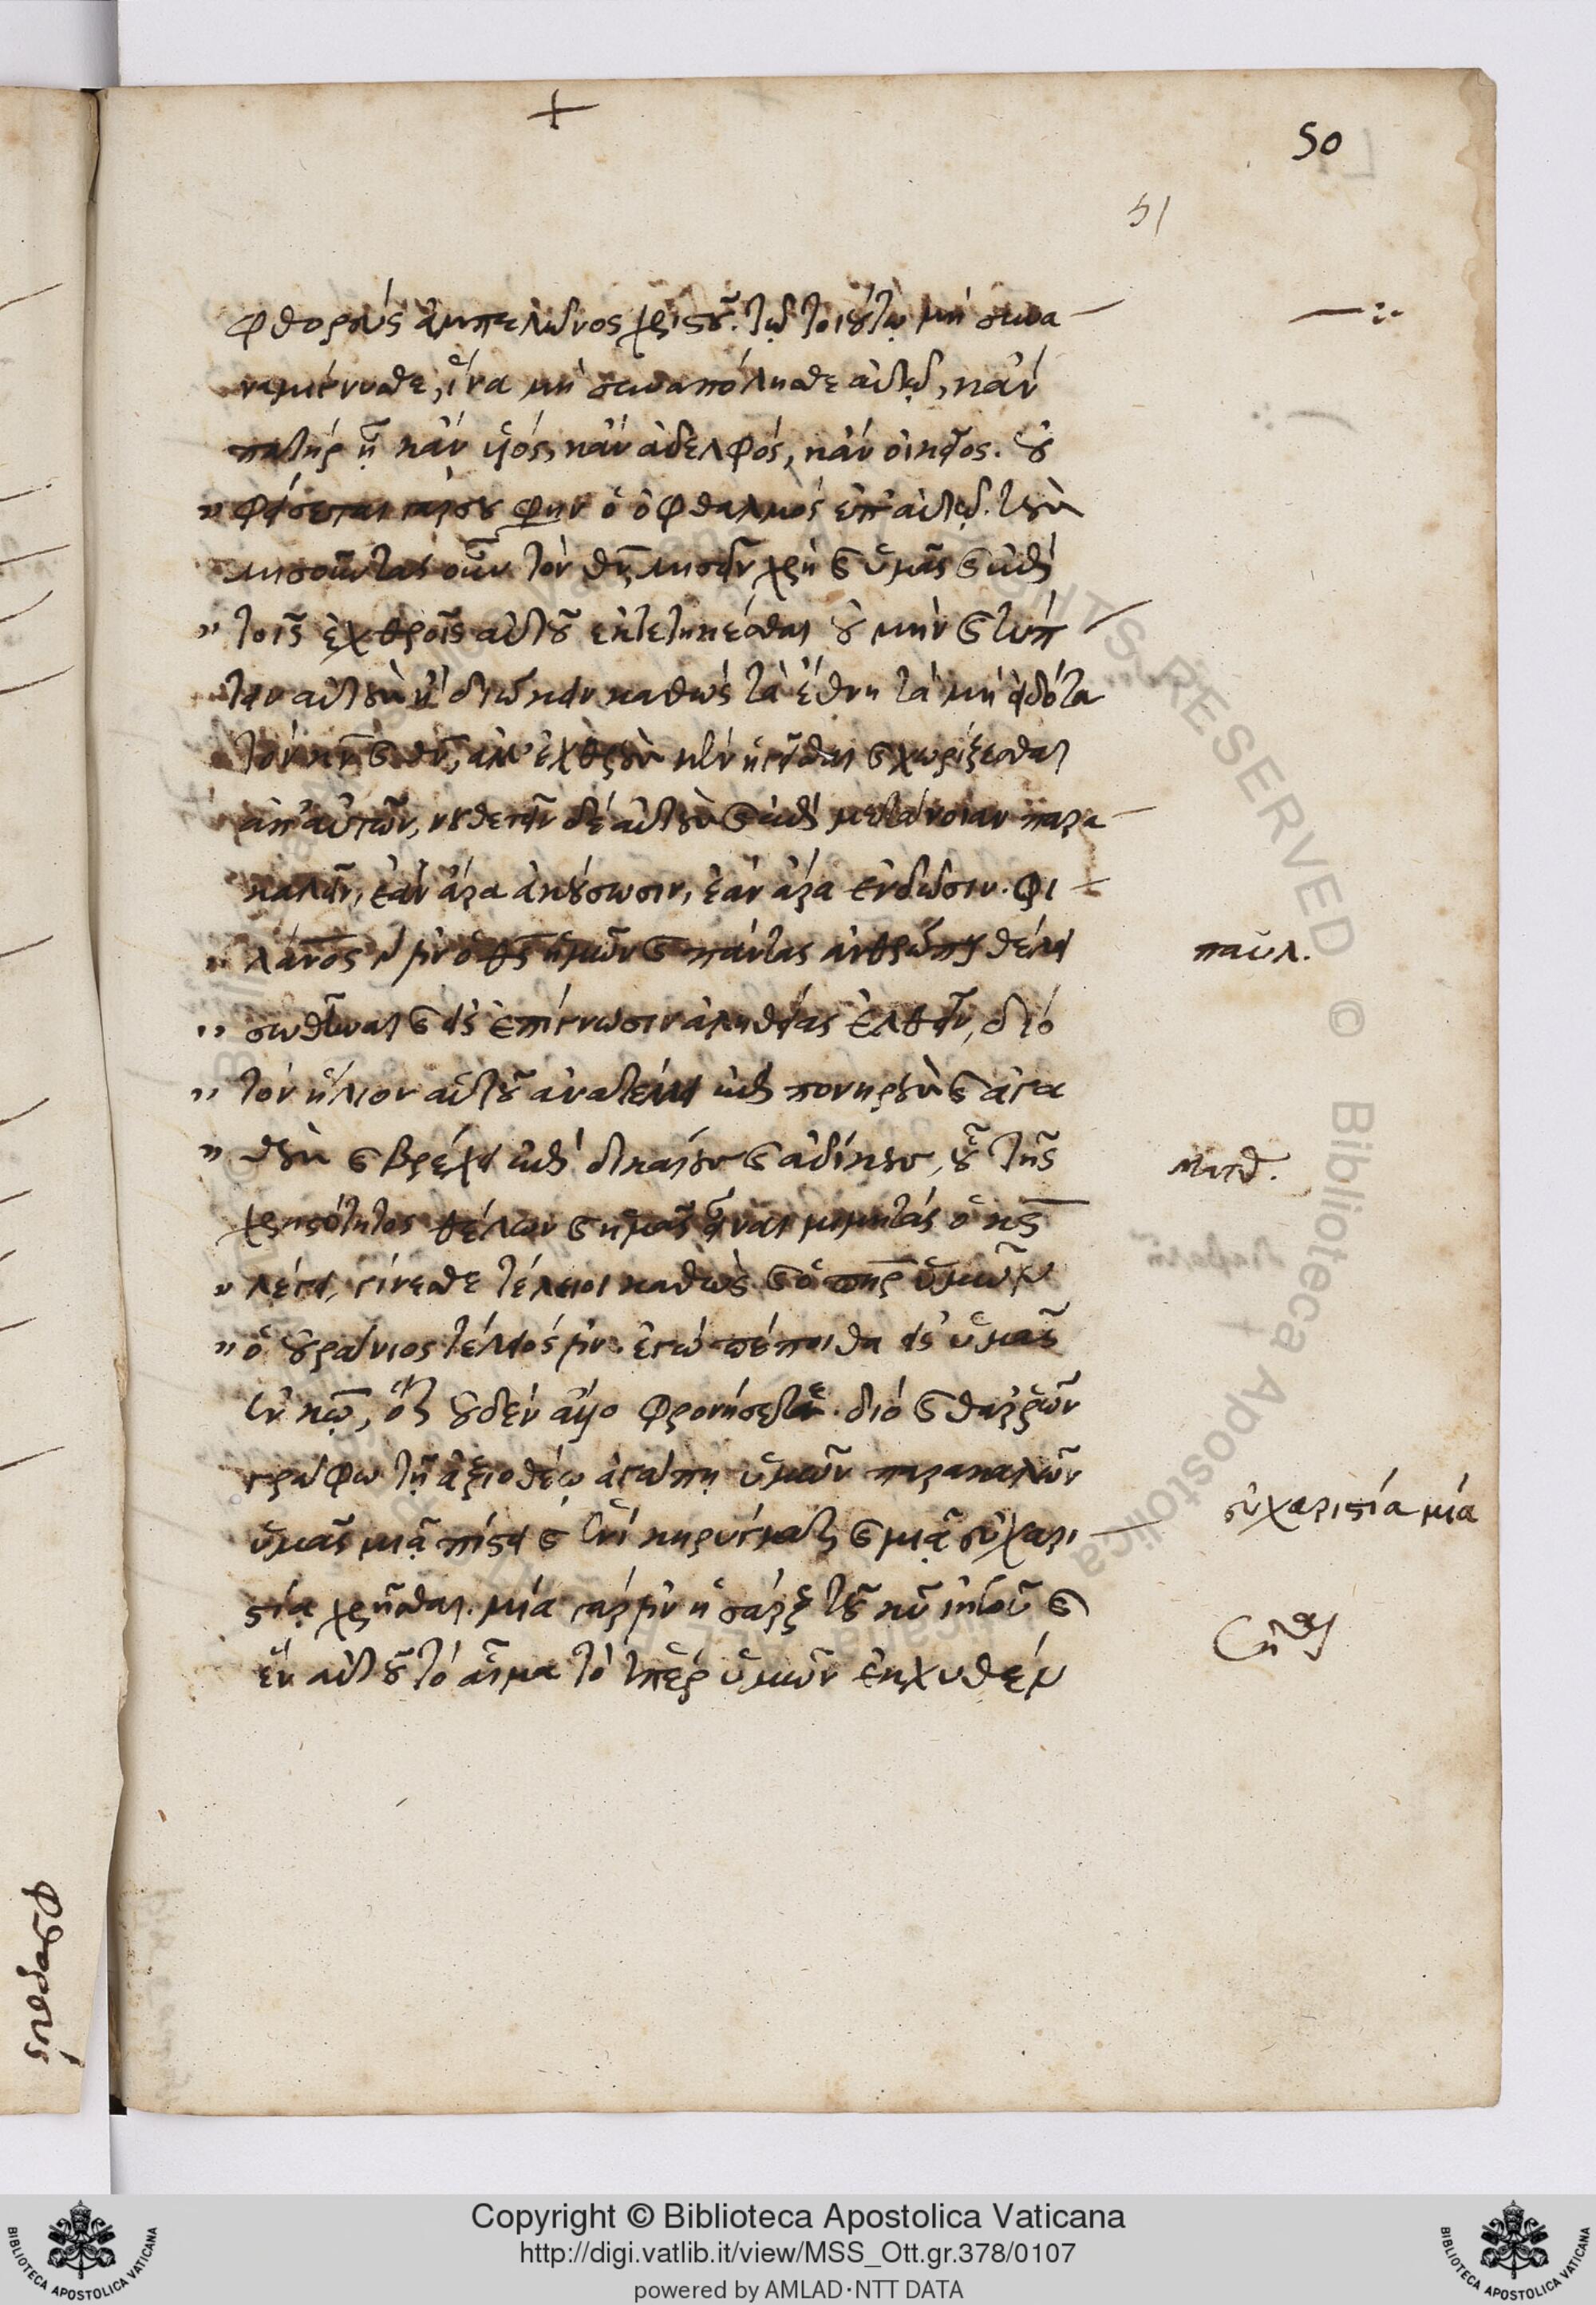 +
50
51
φθορεὺς ἀμπελῶνος χριστοῦ. τῷ τοιούτῳ μὴ συνα
ναμίγνυσθε, ἵνα μὴ συναπόλησθε αὐτῷ, κἂν
πατὴρ ᾖ κἂν υἱός, κἂν ἀδελφός, κἂν οἰκεῖος. οὐ
" φείσεταί γάρ σου φην ὁ ὀφθαλμὸς ἐπ' αὐτῷ. τοὺς
μισοῦντας οὖν τὸν θν, μισεῖν χρὴ καὶ ὑμᾶς καὶ ἐπὶ
" τοῖς ἐχθροῖς αὐτοῦ ἐκτετηκέσθαι οὐ μὴν καὶ τύπ
τειν αὐτοὺς ἢ διώκειν καθὼς τὰ ἔθνη τὰ μὴ εἰδότα
τὸν κν καὶ θν, ἀλλ' ἐχθροὺς μὲν ἡγεῖσθαι καὶ χωρίζεσθαι
ἀπ' αὐτῶν, νουθετεῖν δὲ αὐτοὺς καὶ ἐπὶ μετάνοιαν παρα
καλεῖν, ἐὰν ἄρα ἀκούσωσιν, ἐὰν ἄρα ἐνδῶσιν. φι
" λάνος γάρ ἐστιν ὁ θς ἡμῶν καὶ πάντας ἀνθρώπους θέλει
" σωθῆναι καὶ εἰς ἐπίγνωσιν ἀληθείας ἐλθεῖν, διό
" τὸν ἥλιον αὐτοῦ ἀνατέλλει ἐπὶ πονηροὺς καὶ ἀγα
" θοὺς καὶ βρέχει ἐπὶ δικαίους καὶ ἀδίκους, οὗ τῆς
χρηστότητος θέλων καὶ ἡμᾶς εἶναι μιμητὰς ὁ κς
" λέγει, γίνεσθε τέλειοι καθὼς καὶ ὁ πηρ ὑμῶν
" ὁ οὐράνιος τέλειός ἐστιν. ἐγὼ πέποιθα εἰς ὑμᾶς
ἐν κῳ, ὅτι οὐδὲν ἄλλο φρονήσετε. διὸ καὶ θαρρῶν
γράφω τῇ ἀξιοθέῳ ἀγάπῃ ὑμῶν παρακαλῶν
ὑμᾶς μιᾷ πίστει καὶ ἑνὶ κηρύγματι καὶ μιᾷ εὐχαρι
στίᾳ χρῆσθαι. μία γάρ ἐστιν ἡ σὰρξ τοῦ κυ ἰησοῦ καὶ
ἓν αὐτοῦ τὸ αἷμα τὸ ὑπὲρ ὑμῶν ἐκχυθέν
παῦλ.
ματθ.
εὐχαριστία μία
φθορεὺς
Copyright © Biblioteca Apostolica Vaticana
http://digi.vatlib.it/view/MSS_Ott.gr.378/0107
powered by AMLAD·NTT DATA